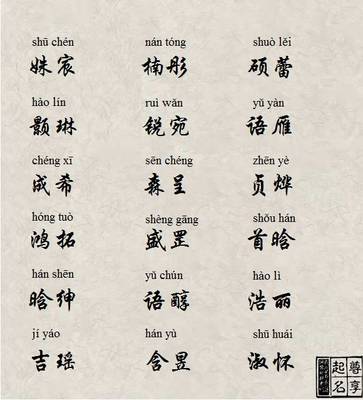 shū chén nán tóng shuò lěi
姝宸 楠彤 硕蕾
hào lín ruì wǎn yǔ yàn
颢琳 锐宛 语雁
chéng xī sēn chéng zhēn yè
成希 森呈 贞烨
hóng tuò shèng gāng shǒu hán
鸿拓 盛罡 首晗
hán shēn yǔ chún hào lì
晗绅 语醇 浩丽
jí yáo hán yù shū huái
吉瑶 含昱 淑怀
尊享
起名